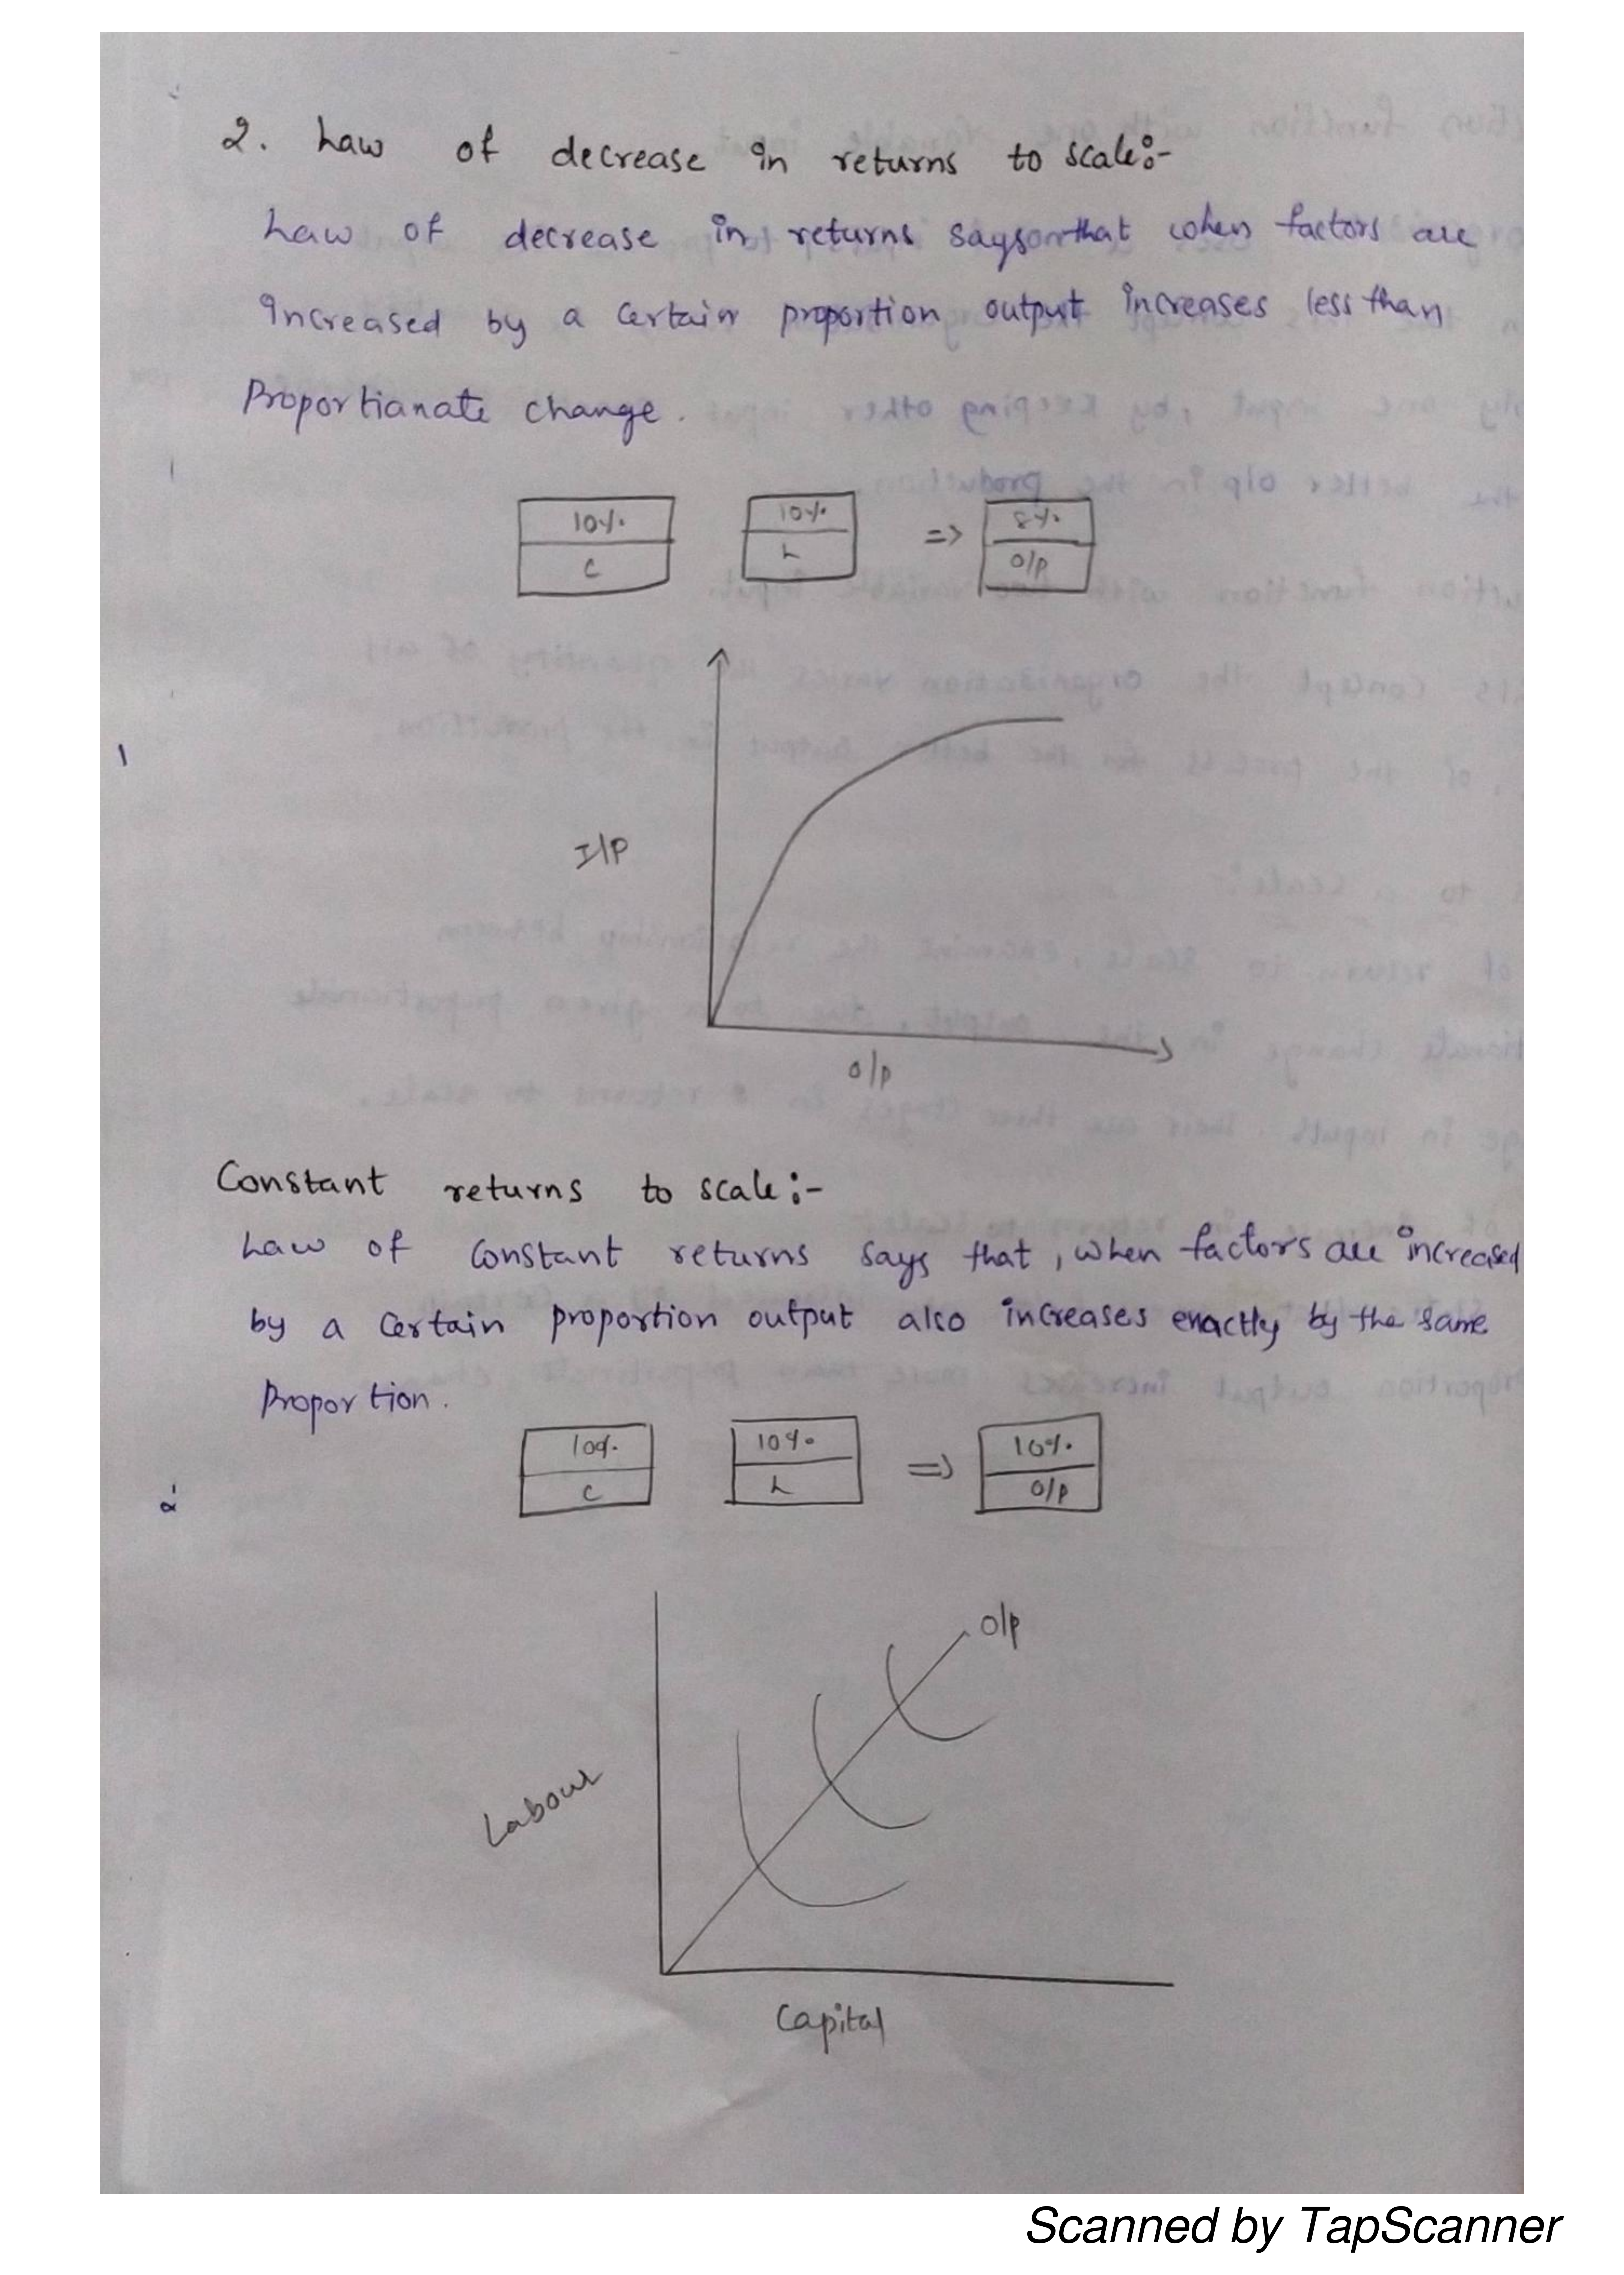 2. Law of decrease in returns to scale:-
Law of decrease in returns says that when factors are
increased by a certain proportion output increases less than
Proportianate change.
10% 10% => 8%
C L O/P
I/P
O/P
Constant returns to scale:-
Law of constant returns says that, when factors are increased
by a certain proportion output also increases exactly by the same
Proportion.
10% 10% => 10%
C L O/P
O/P
Labour
Capital
Scanned by TapScanner